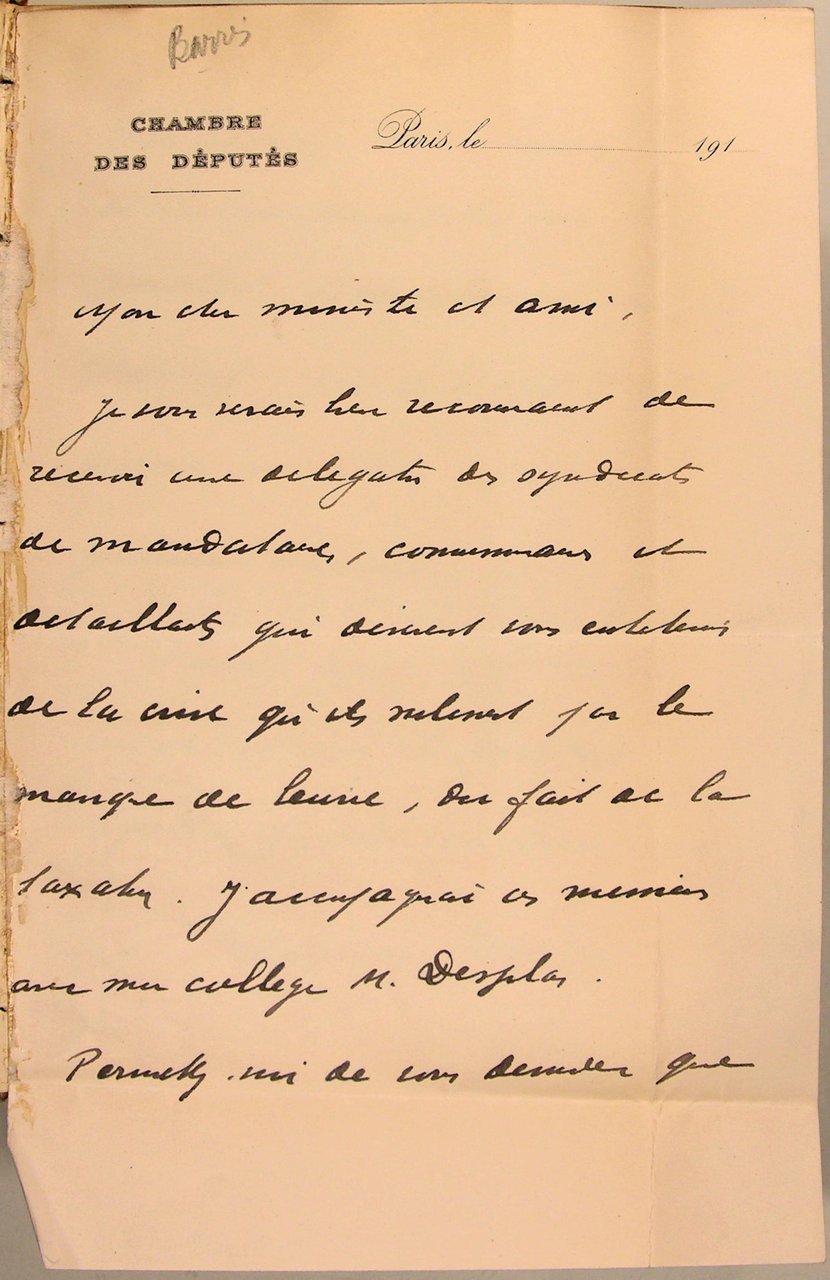 Barrès
CHAMBRE
DES DÉPUTÉS
Paris, le 191
Mon cher ministre et ami,
Je vous serais bien reconnaissant de
recevoir une délégation des syndicats
de mandataires, commissionnaires et
détaillants qui désirent vous entretenir
de la crise qu'ils subissent par le
manque de beurre, du fait de la
taxation. J'accompagnerai ces messieurs
avec mon collègue M. Desplas.
Permettez-moi de vous demander que